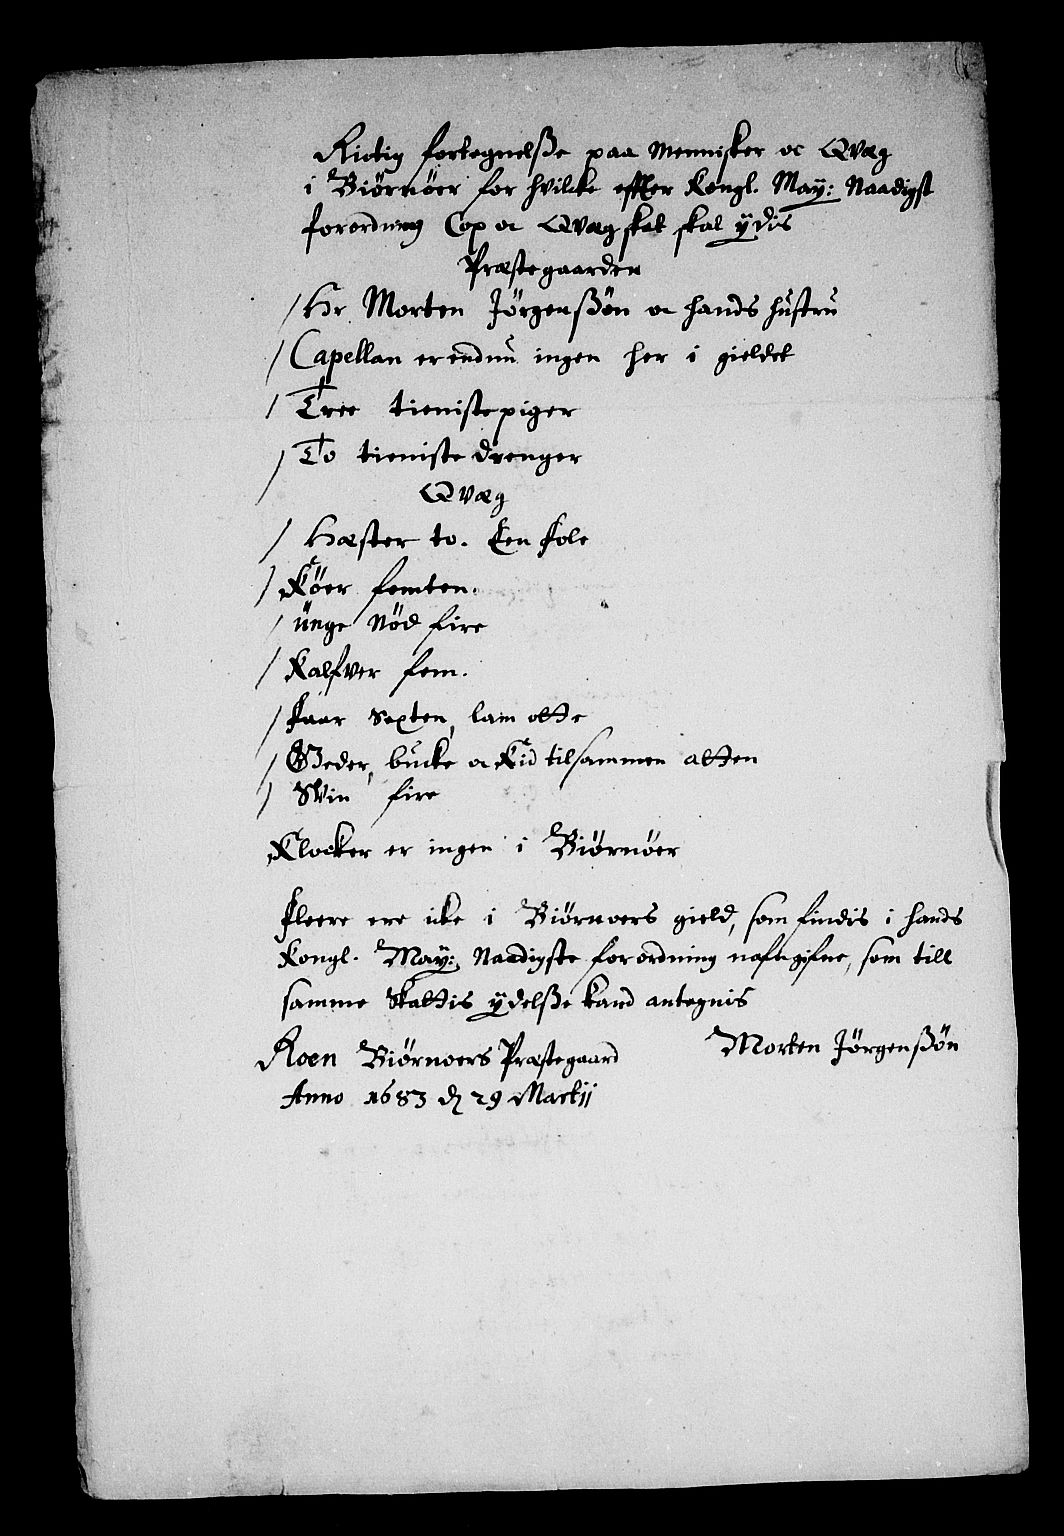 Rictig fortegnelsße paa Mennisker oc Qvæg
i Biørnøer for hvilcke effter Kongl. May: Naadigst
forordning Cop oc Qvægskat skal ÿdis
Præstegaarden
/ Hr. Morten Jörgenßön oc hands hustru
/ Capellan er endnu ingen her i gieldet
/ Tree tienistepiger
/ To tieniste drenger
Qvæg
/ Hæster to. Een fole
/ Köer femten.
/ unge Nöd fire
/ Kalfver fem.
/ Faar Sexten, lam otte
/ Geder, bucke oc Kid tilsammen atten
/ Svin fire
Klocker er ingen i Biørnöer
Fleere ere icke i Biørnoers gield, som findis i hands
Kongl. May: Naadigste forordning nafngifne, som till
samme Skattis ÿdelsße kand antegnis
Roen Biørnoers Præstegaard Morten Jörgenßön
Anno 1683 d 29 Martij